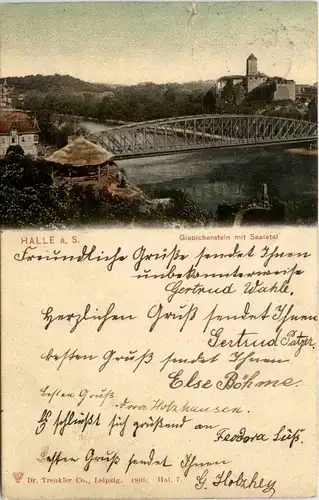 HALLE a. S.
Giebichenstein mit Saaletal
Freundliche Grüße sendet Ihnen
unbekannterweise
Gertrud Wahle.
Herzlichen Gruß sendet Ihnen
Gertrud
besten Gruß sendet Ihnen
Else Böhme.
besten Gruß
Dora Holzhausen.
Es schließt sich grüßend an
Feodora Süß.
Besten Gruß sendet Ihnen
G. Holzhey
Dr. Trenkler Co., Leipzig. 1905. Hal. 7.